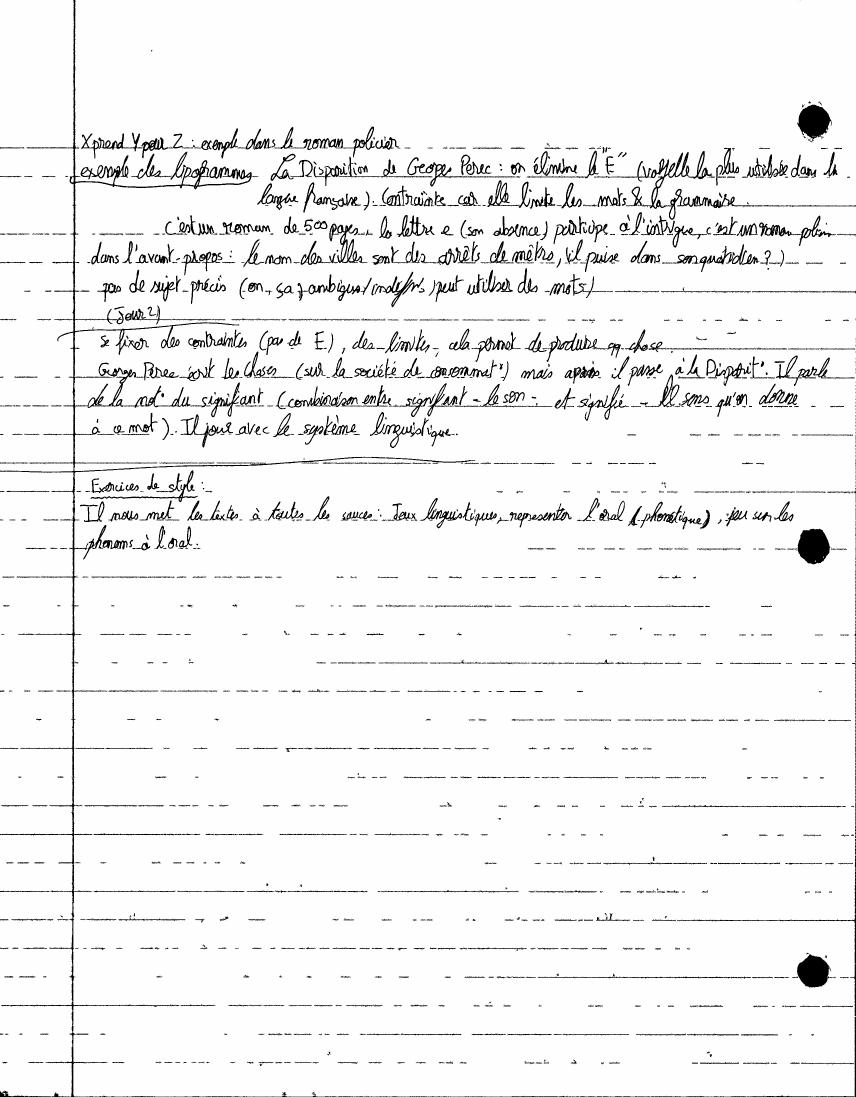 X prend Y pour Z : exemple dans le roman policier
exemple des lipogrammes La Disparition de Georges Perec : on élimine le "E" (voyelle la plus utilisée dans la
langue française). Contrainte car elle limite les mots & la grammaire.
c'est un roman de 500 pages. la lettre e (son absence) participe à l'intrigue, c'est un roman policier
dans l'avant-propos : le nom des villes sont des arrêts de métro, (il puise dans son quotidien ?)
pas de sujet précis (on, ça } ambigus/indéfinis) peut utiliser des mots)
(Jour 2)
se fixer des contraintes (pas de E), des limites, cela permet de produire qq chose.
Georges Perec écrit Les Choses (sur la société de consommat°) mais après il passe à la Disparit°. Il parle
de la not° du signifiant (combinaison entre signifiant - le son - et signifié - le sens qu'on donne
à ce mot). Il joue avec le système linguistique.
Exercices de style :
Il nous met les textes à toutes les sauces : Jeux linguistiques, représenter l'oral (phonétique), jeu sur les
phonems à l'oral.